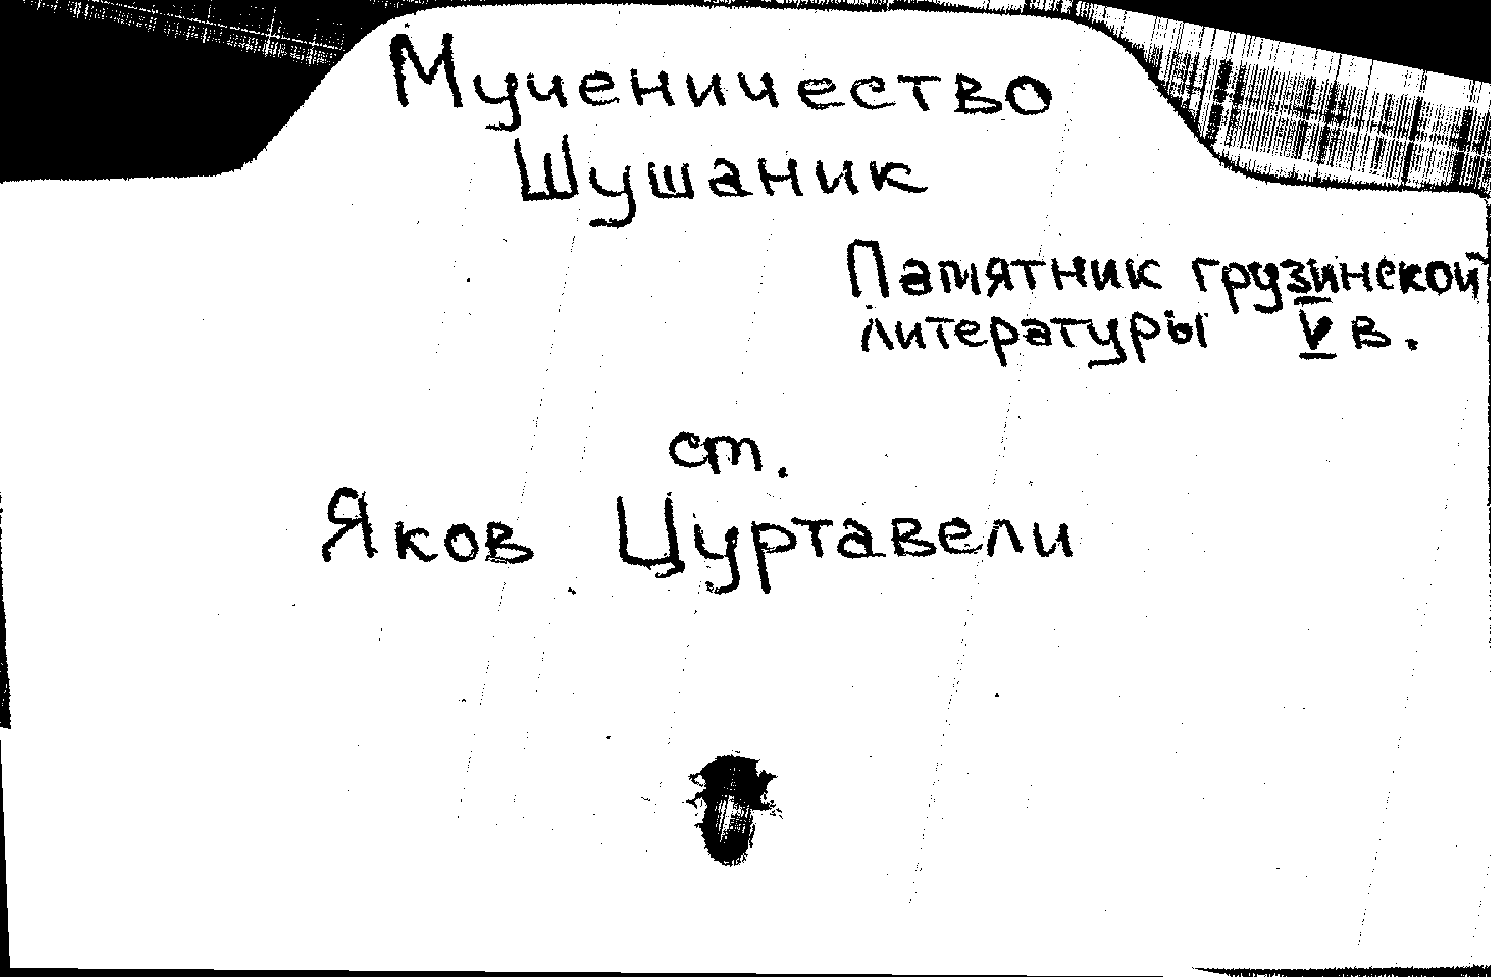 Мученичество
Шушаник
Памятник грузинской
литературы V в.
ст.
Яков Цуртавели